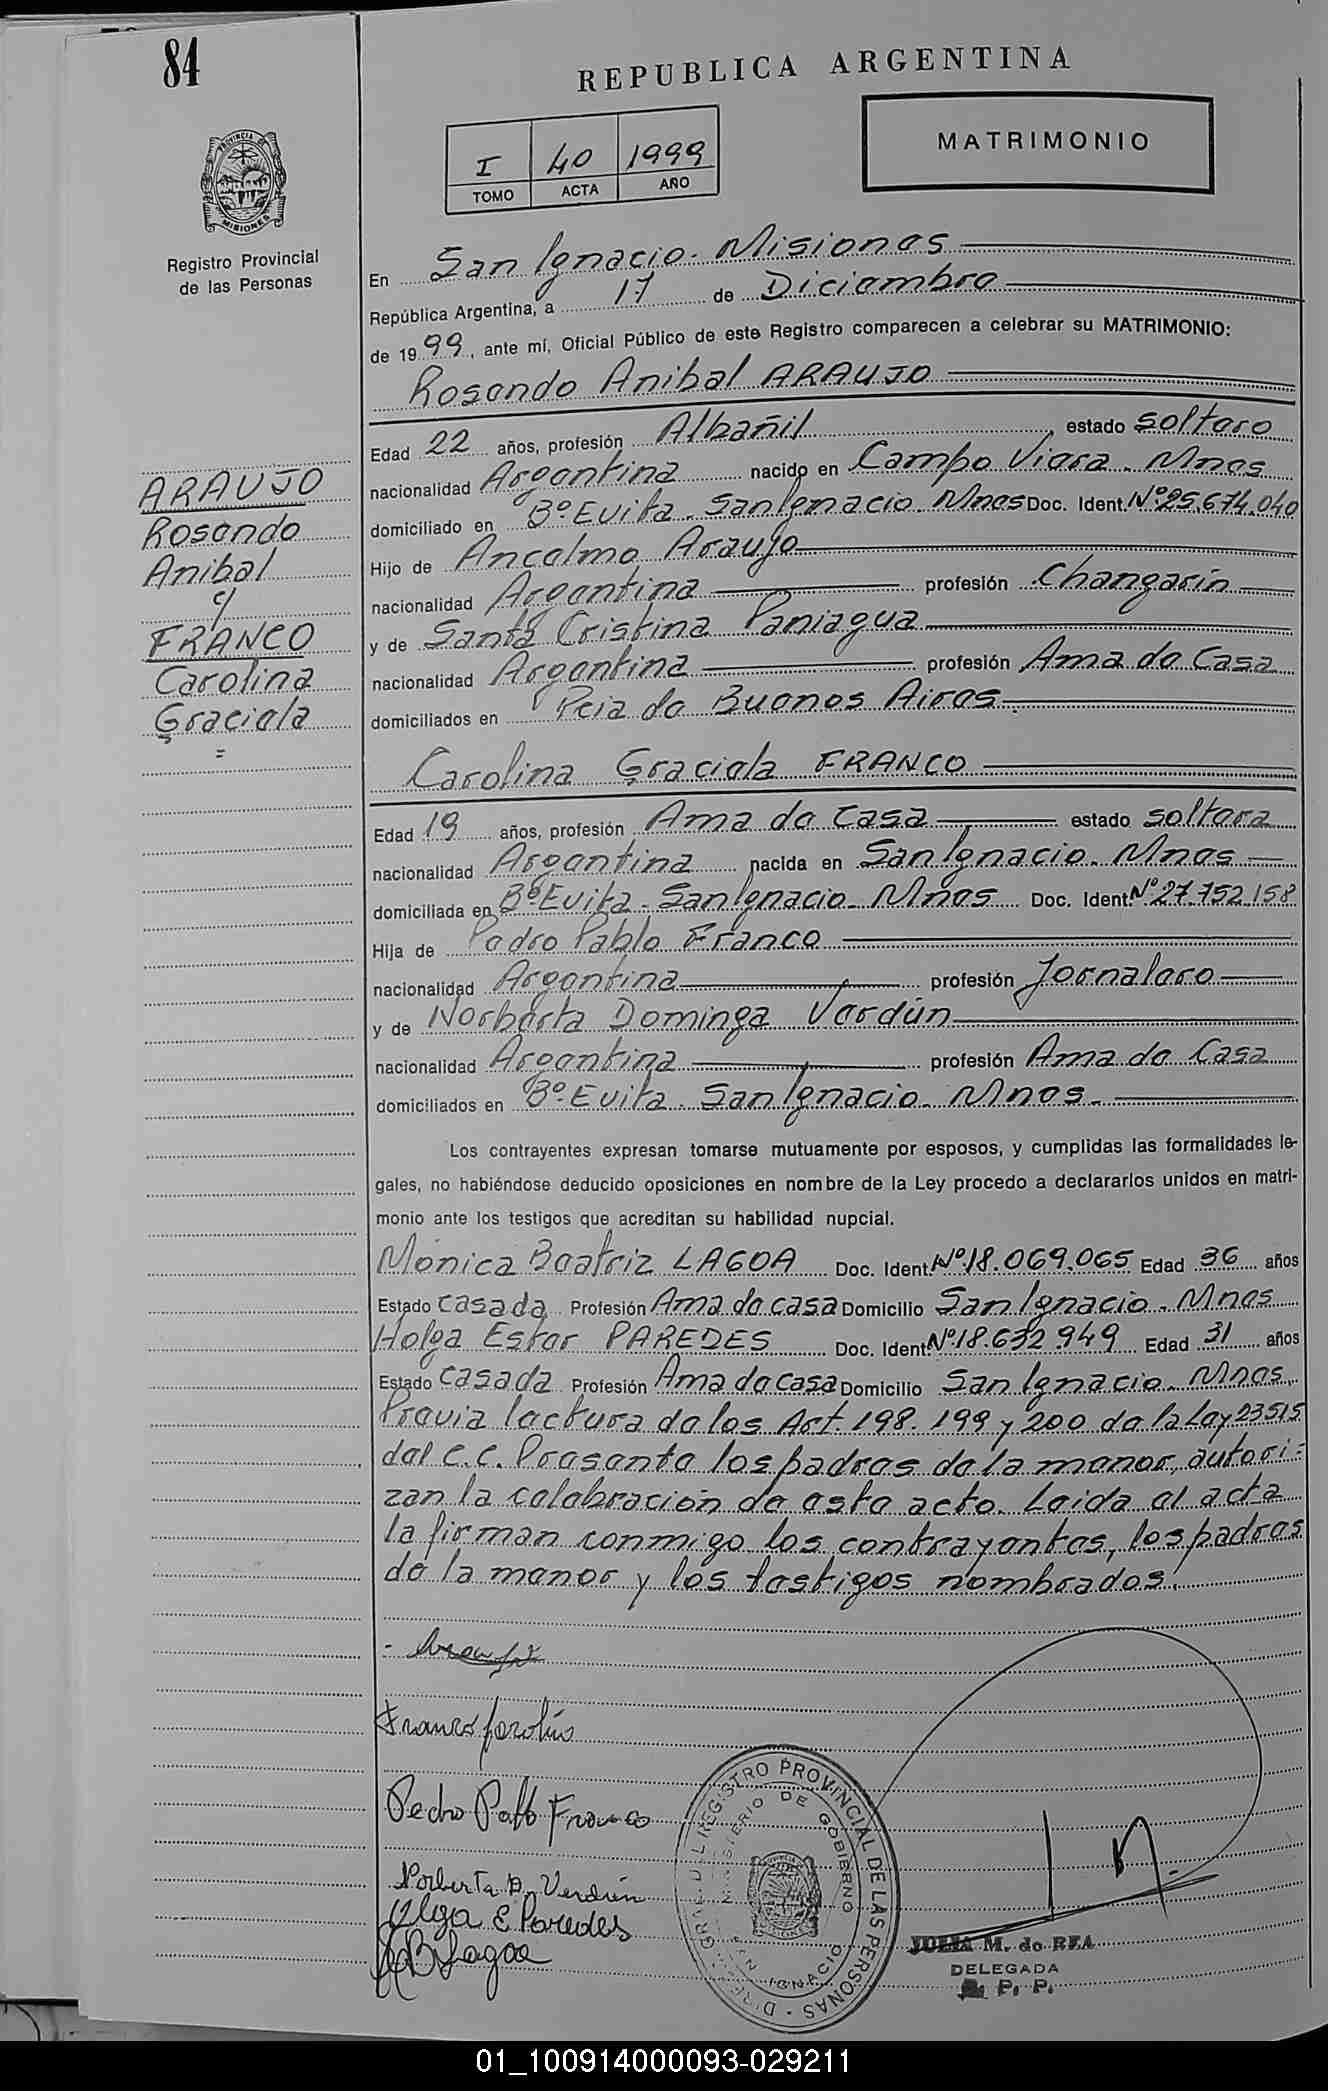 84
REPUBLICA ARGENTINA
MATRIMONIO
I 40 1999
TOMO ACTA AÑO
PROVINCIA DE MISIONES
Registro Provincial
de las Personas
En San Ignacio - Misiones
República Argentina, a 17 de Diciembre
de 1999, ante mí, Oficial Público de este Registro comparecen a celebrar su MATRIMONIO:
Rosendo Anibal ARAUJO
Edad 22 años, profesión Albañil, estado soltero
nacionalidad Argentina nacido en Campo Viera - Mnes
domiciliado en Bº Evita - San Ignacio - Mnes Doc. Ident. Nº 25.674.040
Hijo de Ancelmo Araujo
nacionalidad Argentina profesión Changarín
y de Santa Cristina Paniagua
nacionalidad Argentina profesión Ama de Casa
domiciliados en Pcia de Buenos Aires.
Carolina Graciela FRANCO
Edad 19 años, profesión Ama de Casa estado soltera
nacionalidad Argentina nacida en San Ignacio - Mnes
domiciliada en Bº Evita - San Ignacio - Mnes Doc. Ident. Nº 27.752.158
Hija de Pedro Pablo Franco
nacionalidad Argentina profesión Jornalero
y de Norberta Dominga Verdún
nacionalidad Argentina profesión Ama de Casa
domiciliados en Bº Evita - San Ignacio - Mnes -
ARAUJO
Rosendo
Anibal
c/
FRANCO
Carolina
Graciela
=
Los contrayentes expresan tomarse mutuamente por esposos, y cumplidas las formalidades le-
gales, no habiéndose deducido oposiciones en nombre de la Ley procedo a declararlos unidos en matri-
monio ante los testigos que acreditan su habilidad nupcial.
Mónica Beatriz LAGOA Doc. Ident. Nº 18.069.065 Edad 36 años
Estado Casada Profesión Ama de casa Domicilio San Ignacio - Mnes
Holga Ester PAREDES Doc. Ident. Nº 18.632.949 Edad 31 años
Estado Casada Profesión Ama de casa Domicilio San Ignacio - Mnes.
Previa lectura de los Art. 198. 199 y 200 de la Ley 23515
del C.C. Presente los padres de la menor, autori=
zan la celebración de este acto. Leida el acta
la firman conmigo los contrayentes, los padres
de la menor y los testigos nombrados.
Franco Carolina
Pedro Pablo Franco
Norberta D. Verdún
Olga E Paredes
B Lagoa
REGISTRO PROVINCIAL DE LAS PERSONAS
MINISTERIO DE GOBIERNO
SAN IGNACIO
JULIA M. de REA
DELEGADA
R. P. P.
01_100914000093-029211